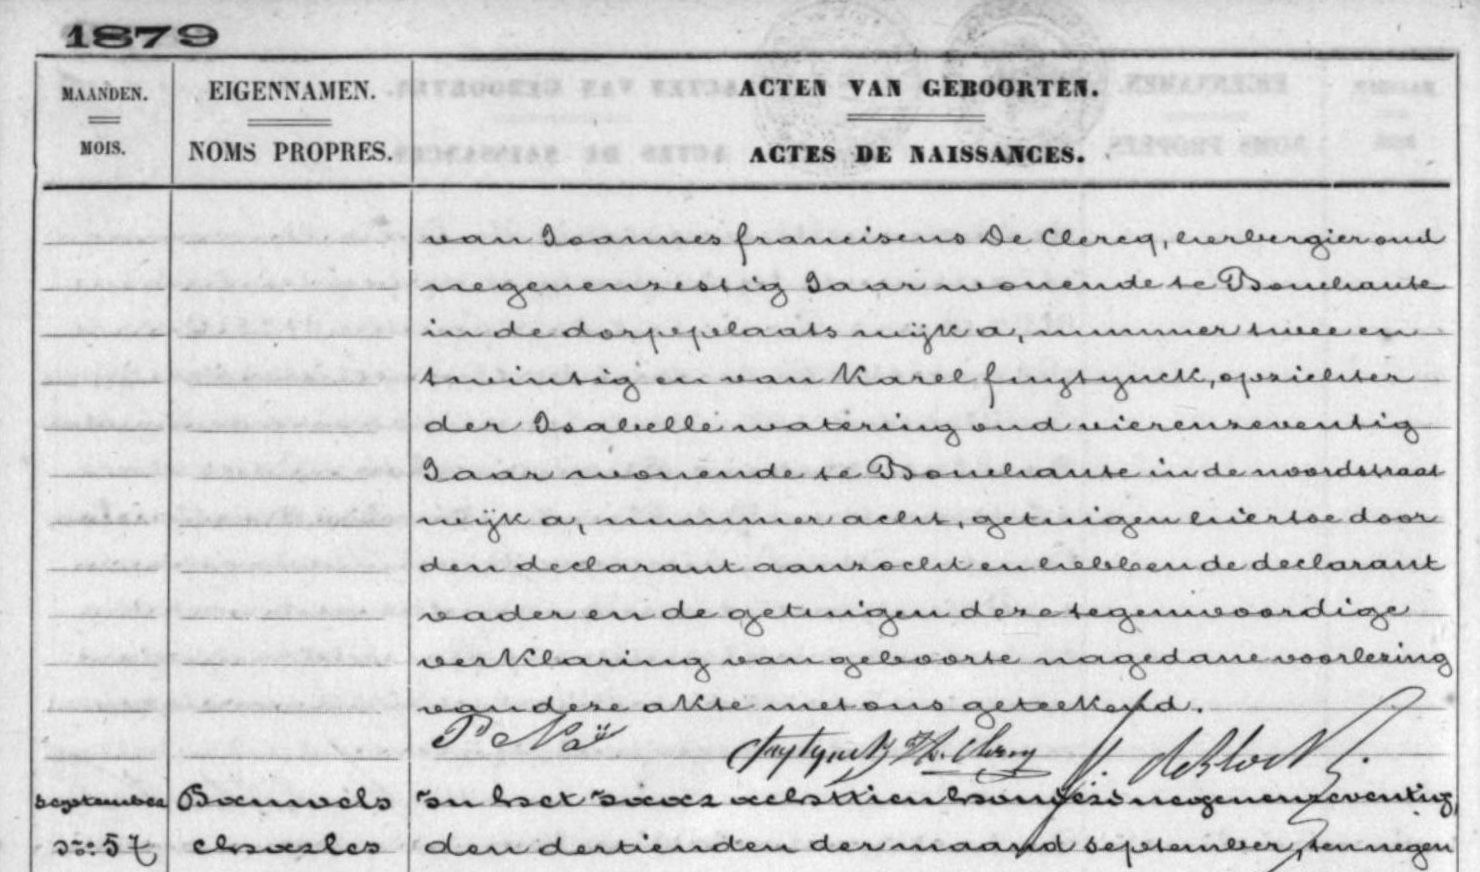 1879
MAANDEN.
MOIS.
EIGENNAMEN.
NOMS PROPRES.
ACTEN VAN GEBOORTEN.
ACTES DE NAISSANCES.
van Joannes franciscus De Clercq, herbergier oud
negenenzestig Jaar wonende te Bouchaute
in de dorpsplaats wijk a, nummer twee en
twintig en van Karel fuytynck, opzichter
der Isabelle watering oud vierenzeventig
Jaar wonende te Bouchaute in de noordstraat
wijk a, nummer acht, getuigen hiertoe door
den declarant aanzocht en hebben de declarant
vader en de getuigen deze tegenwoordige
verklaring van geboorte na gedane voorlezing
van deze akte met ons geteekend.
fuytynck De Clercq
september Bauwels in het jaar achttien honderd negenenzeventig,
No: 57 charles den dertienden der maand september, ten negen